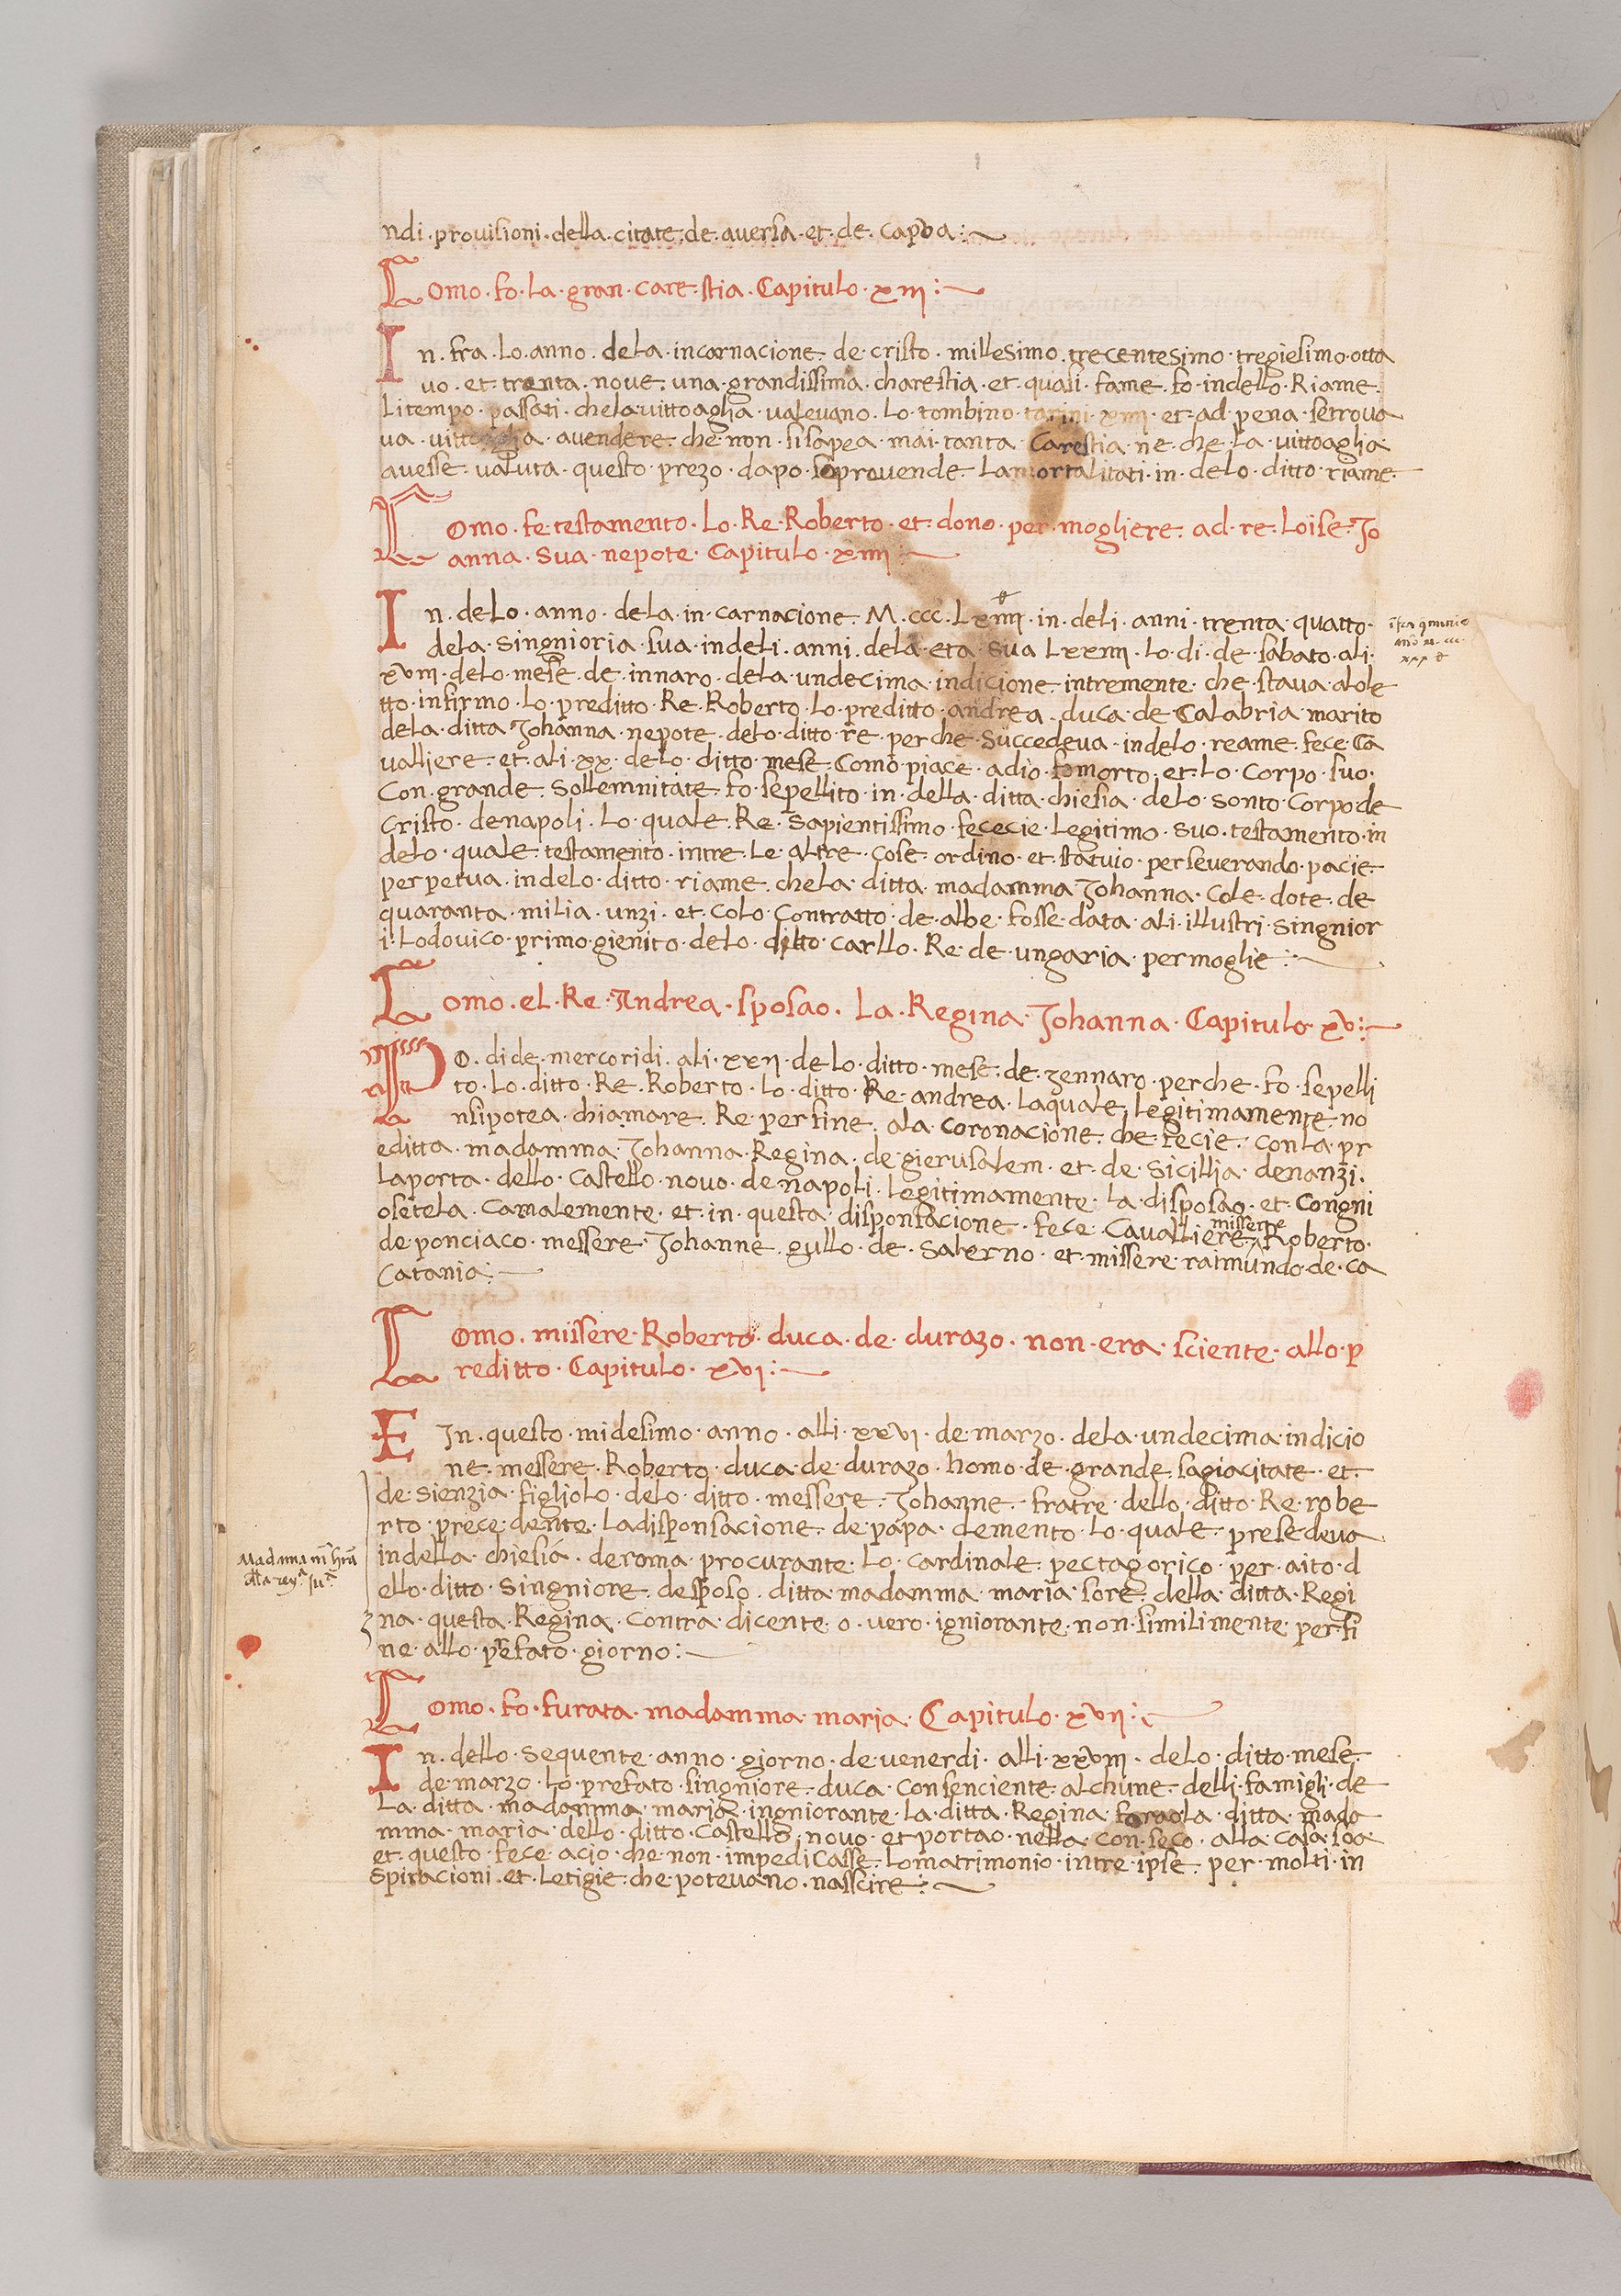 ndi · provisioni · della · citate · de · aversa · et · de · capva :~
Como · fo · La · gran · care · stia · Capitulo · xiii :~
In · fra · Lo · anno · deLa · incarnacione · de · cristo · millesimo · trecentesimo · tregiesimo · otta
vo · et · trenta · nove · una · grandissima · charestia · et · quasi · fame · fo · indello · Riame ·
Li tempo · passati · chela · vittoaglia · valevano · Lo · tombino · tarini · xiiii · et · ad · pena · setrova
va · vittoaglia · avendere · che · non · sisapea · mai · tanta · Carestia · ne · che · La · vittoaglia
avesse · valuta · questo · prezo · dapo · seprovende · Lamortalitati · in · delo · ditto · riame ·
Como · fe · testamento · Lo · Re · Roberto · et · dono · per · mogliere · ad · re · Loise · Jo
anna · Sua · nepote · Capitulo · xiiii :~
In · deLo · anno · dela · in · carnacione · M · ccc · Lxiiii · in · deli · anni · trenta · quatto ·
dela · singnioria · sua · indeli · anni · dela · eta · sua Lxxiiii · Lo · di · de · sabato · ali ·
xviii · deLo · mese · de · innaro · dela · undecima · indicione · intremente · che · stava · alole
tto · infirmo · Lo · preditto · Re · Roberto · Lo · preditto · andrea · duca · de · CaLabria · marito
dela · ditta · Johanna · nepote · delo · ditto · re · perche · succedeva · indelo · reame · fece · Ca
valliere · et · ali · xx · delo · ditto · mese · Como · piace · adio · fo morto · et · Lo · Corpo · suo ·
Con · grande · Sollemnitate · fo · sepellito · in · della · ditta · chiesia · delo · Sonto · Corpo de
Cristo · denapoli · Lo · quale · Re · Sapientissimo · fececie · Legitimo · suo · testamento · in
delo · quale · testamento · intre · Le · altre · Cose · ordino · et · statuio · perseverando · pacie ·
perpetua · indelo · ditto · riame · chela · ditta · madamma · Johanna · Cole · dote · de
quaranta · milia · unzi · et · Colo · Contratto · de · albe · fosse · data · ali · illustri · Singnior
i · Lodovico · primo · gienito · delo · ditto · carllo · Re · de · ungaria · permoglie :~
Como · eL · Re · Andrea · sposao · La · Regina · Johanna · Capitulo · xv :~
Po · di de · mercoridi · ali · xxii · deLo · ditto · mese · de · zennaro · perche · fo · sepelli
to · Lo · ditto · Re · Roberto · Lo · ditto · Re · andrea · Laquale · Legitimamente · no
nsipotea · chiamare · Re · perfine · ala · Coronacione · che · fecie · ConLa · pr
editta · madamma · Johanna · Regina · de · gierusalem · et · de · Sicillia · denanzi ·
Laporta · dello · Castello · novo · de napoli · Legitimamente · La · disposao · et · Congni
osetela · Camalemente · et · in · questa · disponsacione · fece · Cavalliere · missere Roberto ·
de · ponciaco · messere · Johanne · gullo · de · Salerno · et · missere · raimundo · de · ca
Catania :~
Como · missere · Roberto · duca · de · durazo · non · era · sciente · allo · p
reditto · Capitulo · xvi :~
E Jn · questo · midesimo · anno · alli · xxvi · de · marzo · dela · undecima · indicio
ne · messere · Roberto · duca · de · durazo · homo · de · grande · sagiacitate · et ·
de · Sienzia · figliolo · delo · ditto · messere · Johanne · fratre · dello · ditto · Re · robe
rto · prece · dente · Ladisponsacione · de · papa · clemento · Lo · quale · presedeva
indella · chiesia · deroma · procurante · Lo · Cardinale · pectagorico · per · aito · d
ello · ditto · Singniore · desposo · ditta · madamma · maria · sore · della · ditta · Regi
na · questa · Regina · Contra · dicente · o · vero · igniorante · non · similimente · perfi
ne · allo · prefato · giorno :~
Madama
Como · fo · furata · madamma · maria · Capitulo · xvii :~
In · dello · Sequente · anno · giorno · de · venerdi · alli · xxviii · delo · ditto · mese ·
de · marzo · Lo · prefato · singniore · duca · Consenciente · alchune · delli · famigli · de
La · ditta · madamma · maria · ingniorante · La · ditta · Regina · foraola · ditta · mada
mma · maria · dello · ditto · Castello · novo · et · portao · nella · con · seco · alla · casa · soa
et · questo · fece · acio · che · non · impediCasse · Lomatrimonio · intre · ipse · per · molti · in
spiracioni · et · Letigie · che · potevano · nasscire :~